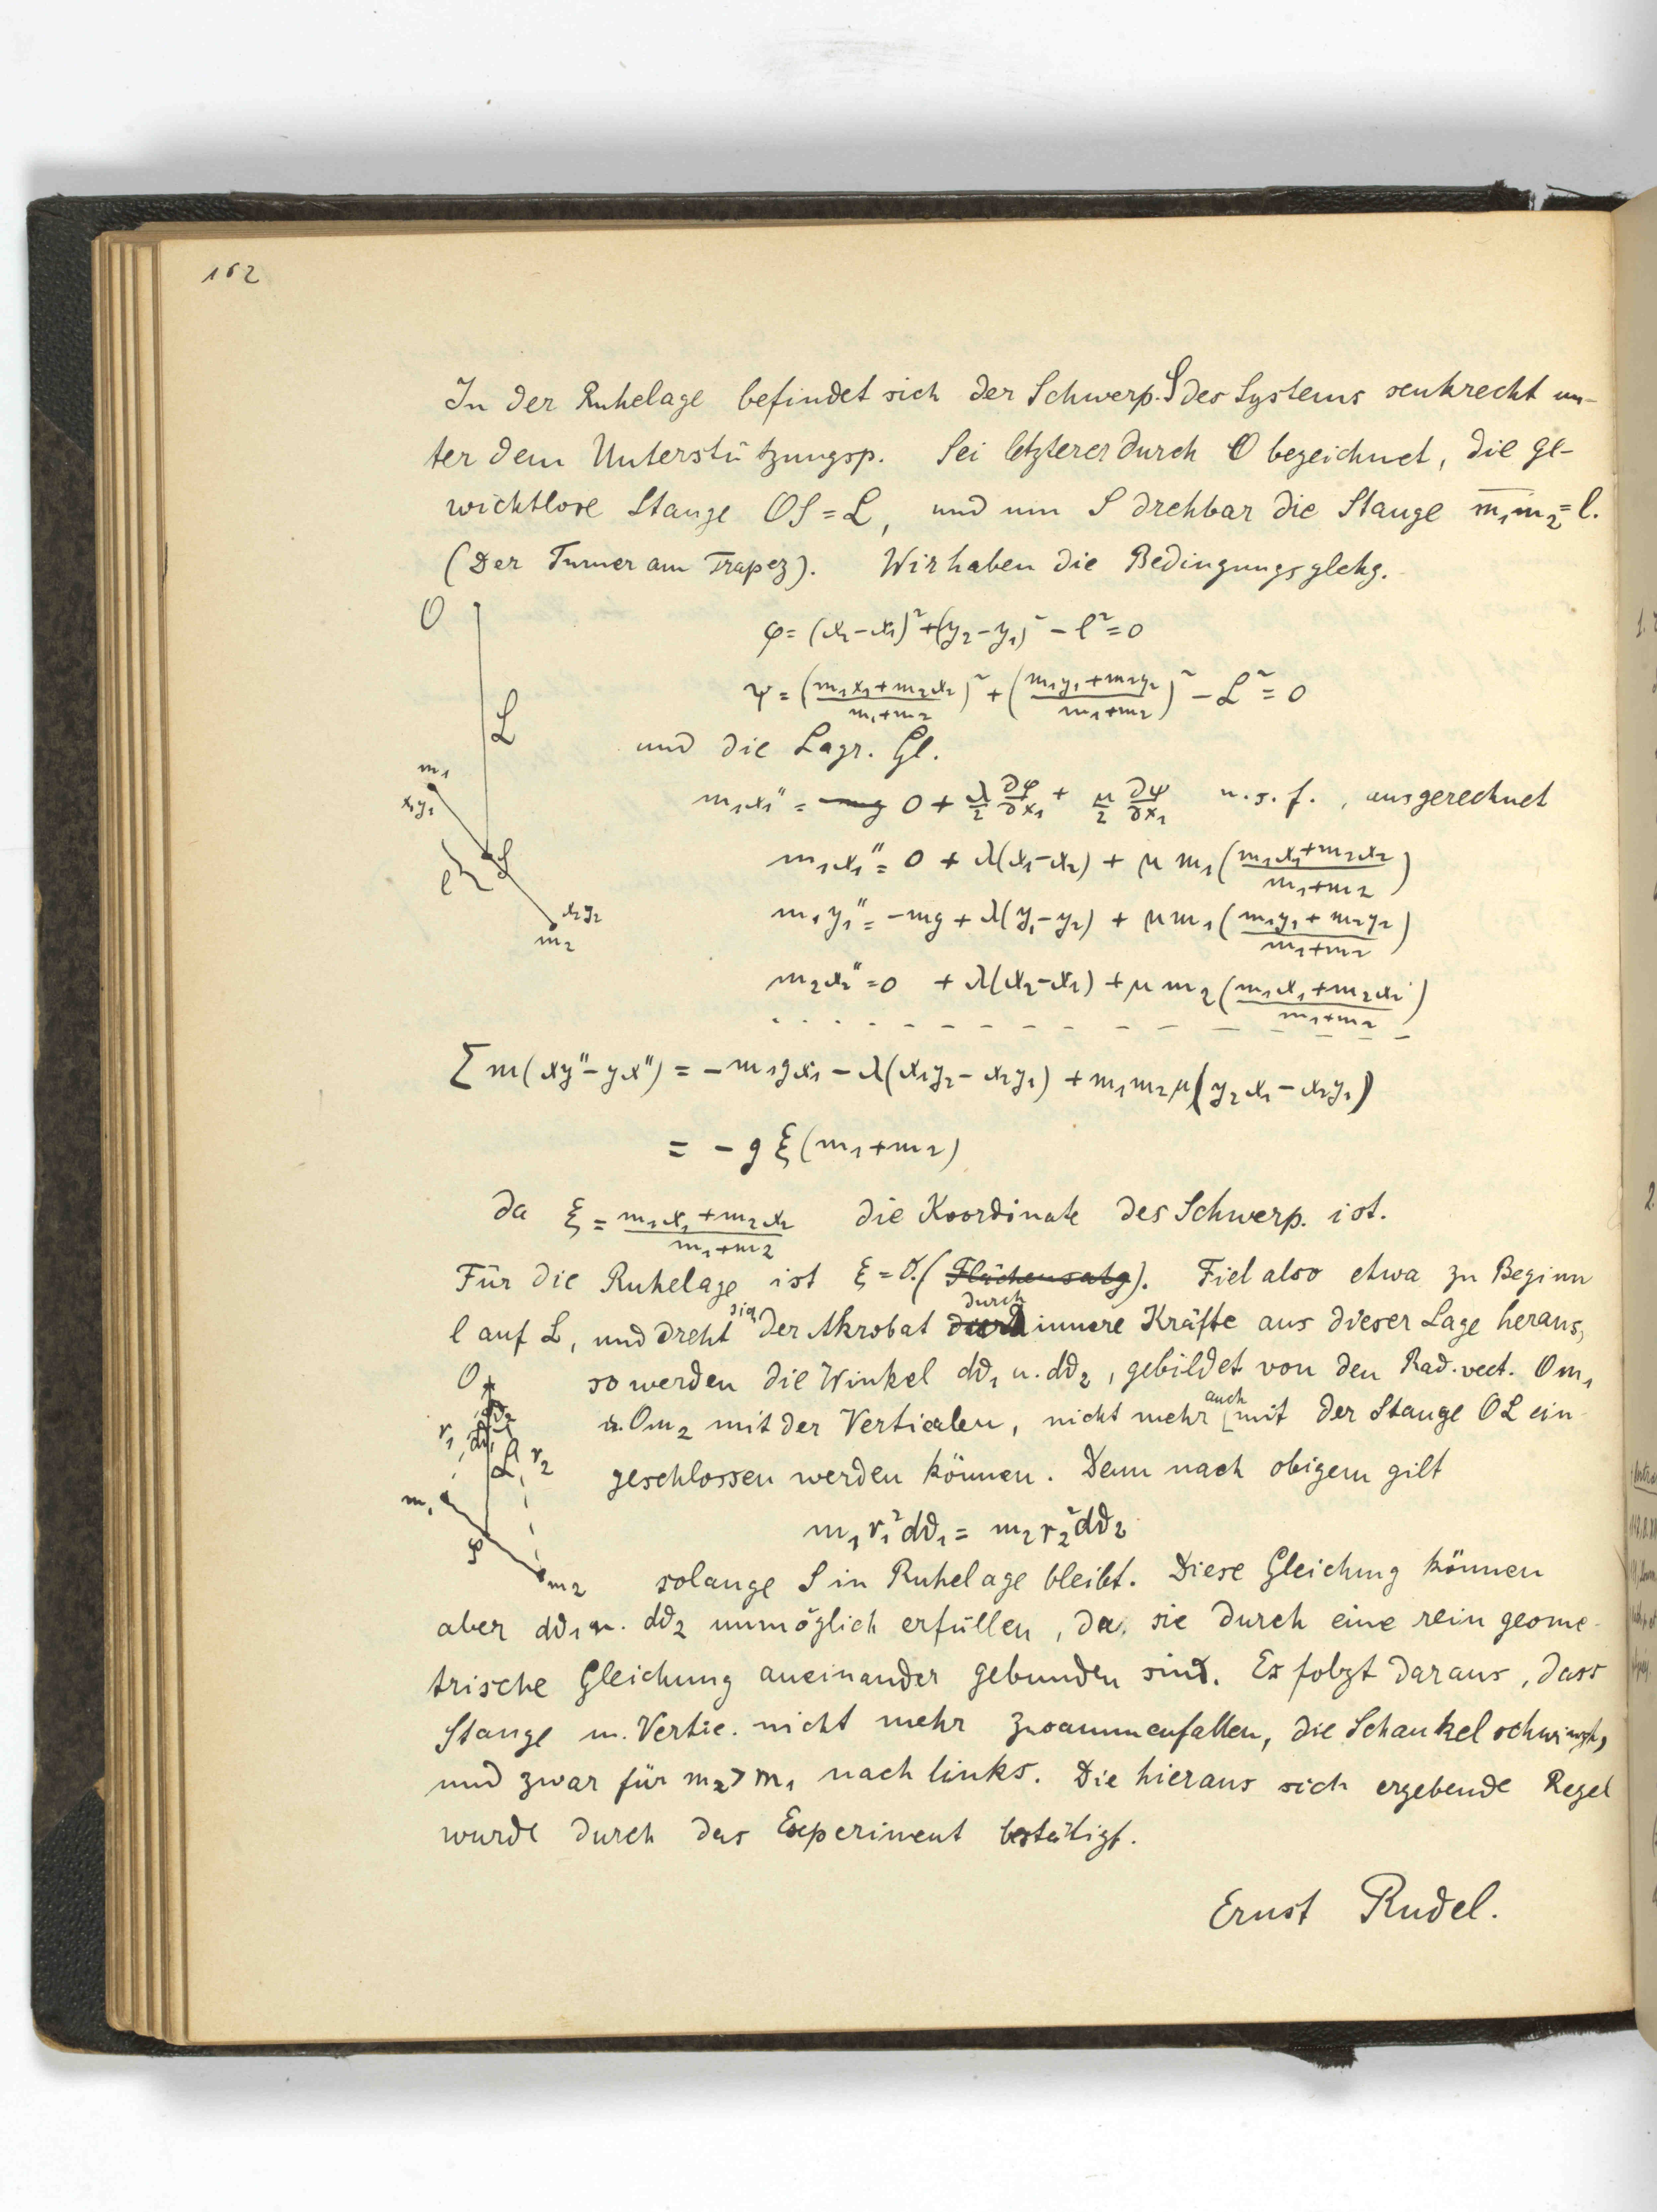 162
In der Ruhelage befindet sich der Schwerp. S des Systems senkrecht un-
ter dem Unterstützungsp. Sei letzterer durch O bezeichnet, die ge-
wichtlose Stange OS = L, und um S drehbar die Stange m₁m₂ = l.
(Der Turner am Trapez). Wir haben die Bedingungsglchg.
O
φ = (x₂-x₁)² + (y₂-y₁)² - l² = 0
ψ = ((m₁x₁+m₂x₂)/(m₁+m₂))² + ((m₁y₁+m₂y₂)/(m₁+m₂))² - L² = 0
L
und die Lagr. Gl.
m₁
x₁y₁
m₁x₁'' = 0 + λ/2 ∂φ/∂x₁ + μ/2 ∂ψ/∂x₁ u.s.f., ausgerechnet
m₁x₁'' = 0 + λ(x₁-x₂) + μ m₁((m₁x₁+m₂x₂)/(m₁+m₂))
S
l
m₁y₁'' = -mg + λ(y₁-y₂) + μ m₁((m₁y₁+m₂y₂)/(m₁+m₂))
x₂y₂
m₂
m₂x₂'' = 0 + λ(x₂-x₁) + μ m₂((m₁x₁+m₂x₂)/(m₁+m₂))
Σ m(xy''-yx'') = -m₁gx₁ - λ(x₁y₂-x₂y₁) + m₁m₂μ(y₂x₁-x₂y₁)
= -gξ(m₁+m₂)
da ξ = (m₁x₁+m₂x₂)/(m₁+m₂) die Koordinate des Schwerp. ist.
Für die Ruhelage ist ξ = 0. (Flächensatz). Fiel also etwa zu Beginn
l auf L, und dreht sich der Akrobat durch innere Kräfte aus dieser Lage heraus,
so werden die Winkel dϑ₁ u. dϑ₂, gebildet von den Rad. vect. Om₁
u. Om₂ mit der Verticalen, nicht mehr auch mit der Stange OL ein-
geschlossen werden können. Denn nach obigem gilt
O
dϑ₂
r₁
dϑ₁
L
r₂
m₁
S
m₂
m₁r₁²dϑ₁ = m₂r₂²dϑ₂
solange S in Ruhelage bleibt. Diese Gleichung können
aber dϑ₁ u. dϑ₂ unmöglich erfüllen, da sie durch eine rein geome-
trische Gleichung aneinander gebunden sind. Es folgt daraus, dass
Stange u. Vertic. nicht mehr zusammenfallen, die Schaukel schwingt,
und zwar für m₂ > m₁ nach links. Die hieraus sich ergebende Regel
wurde durch das Experiment bestätigt.
Ernst Rudel.